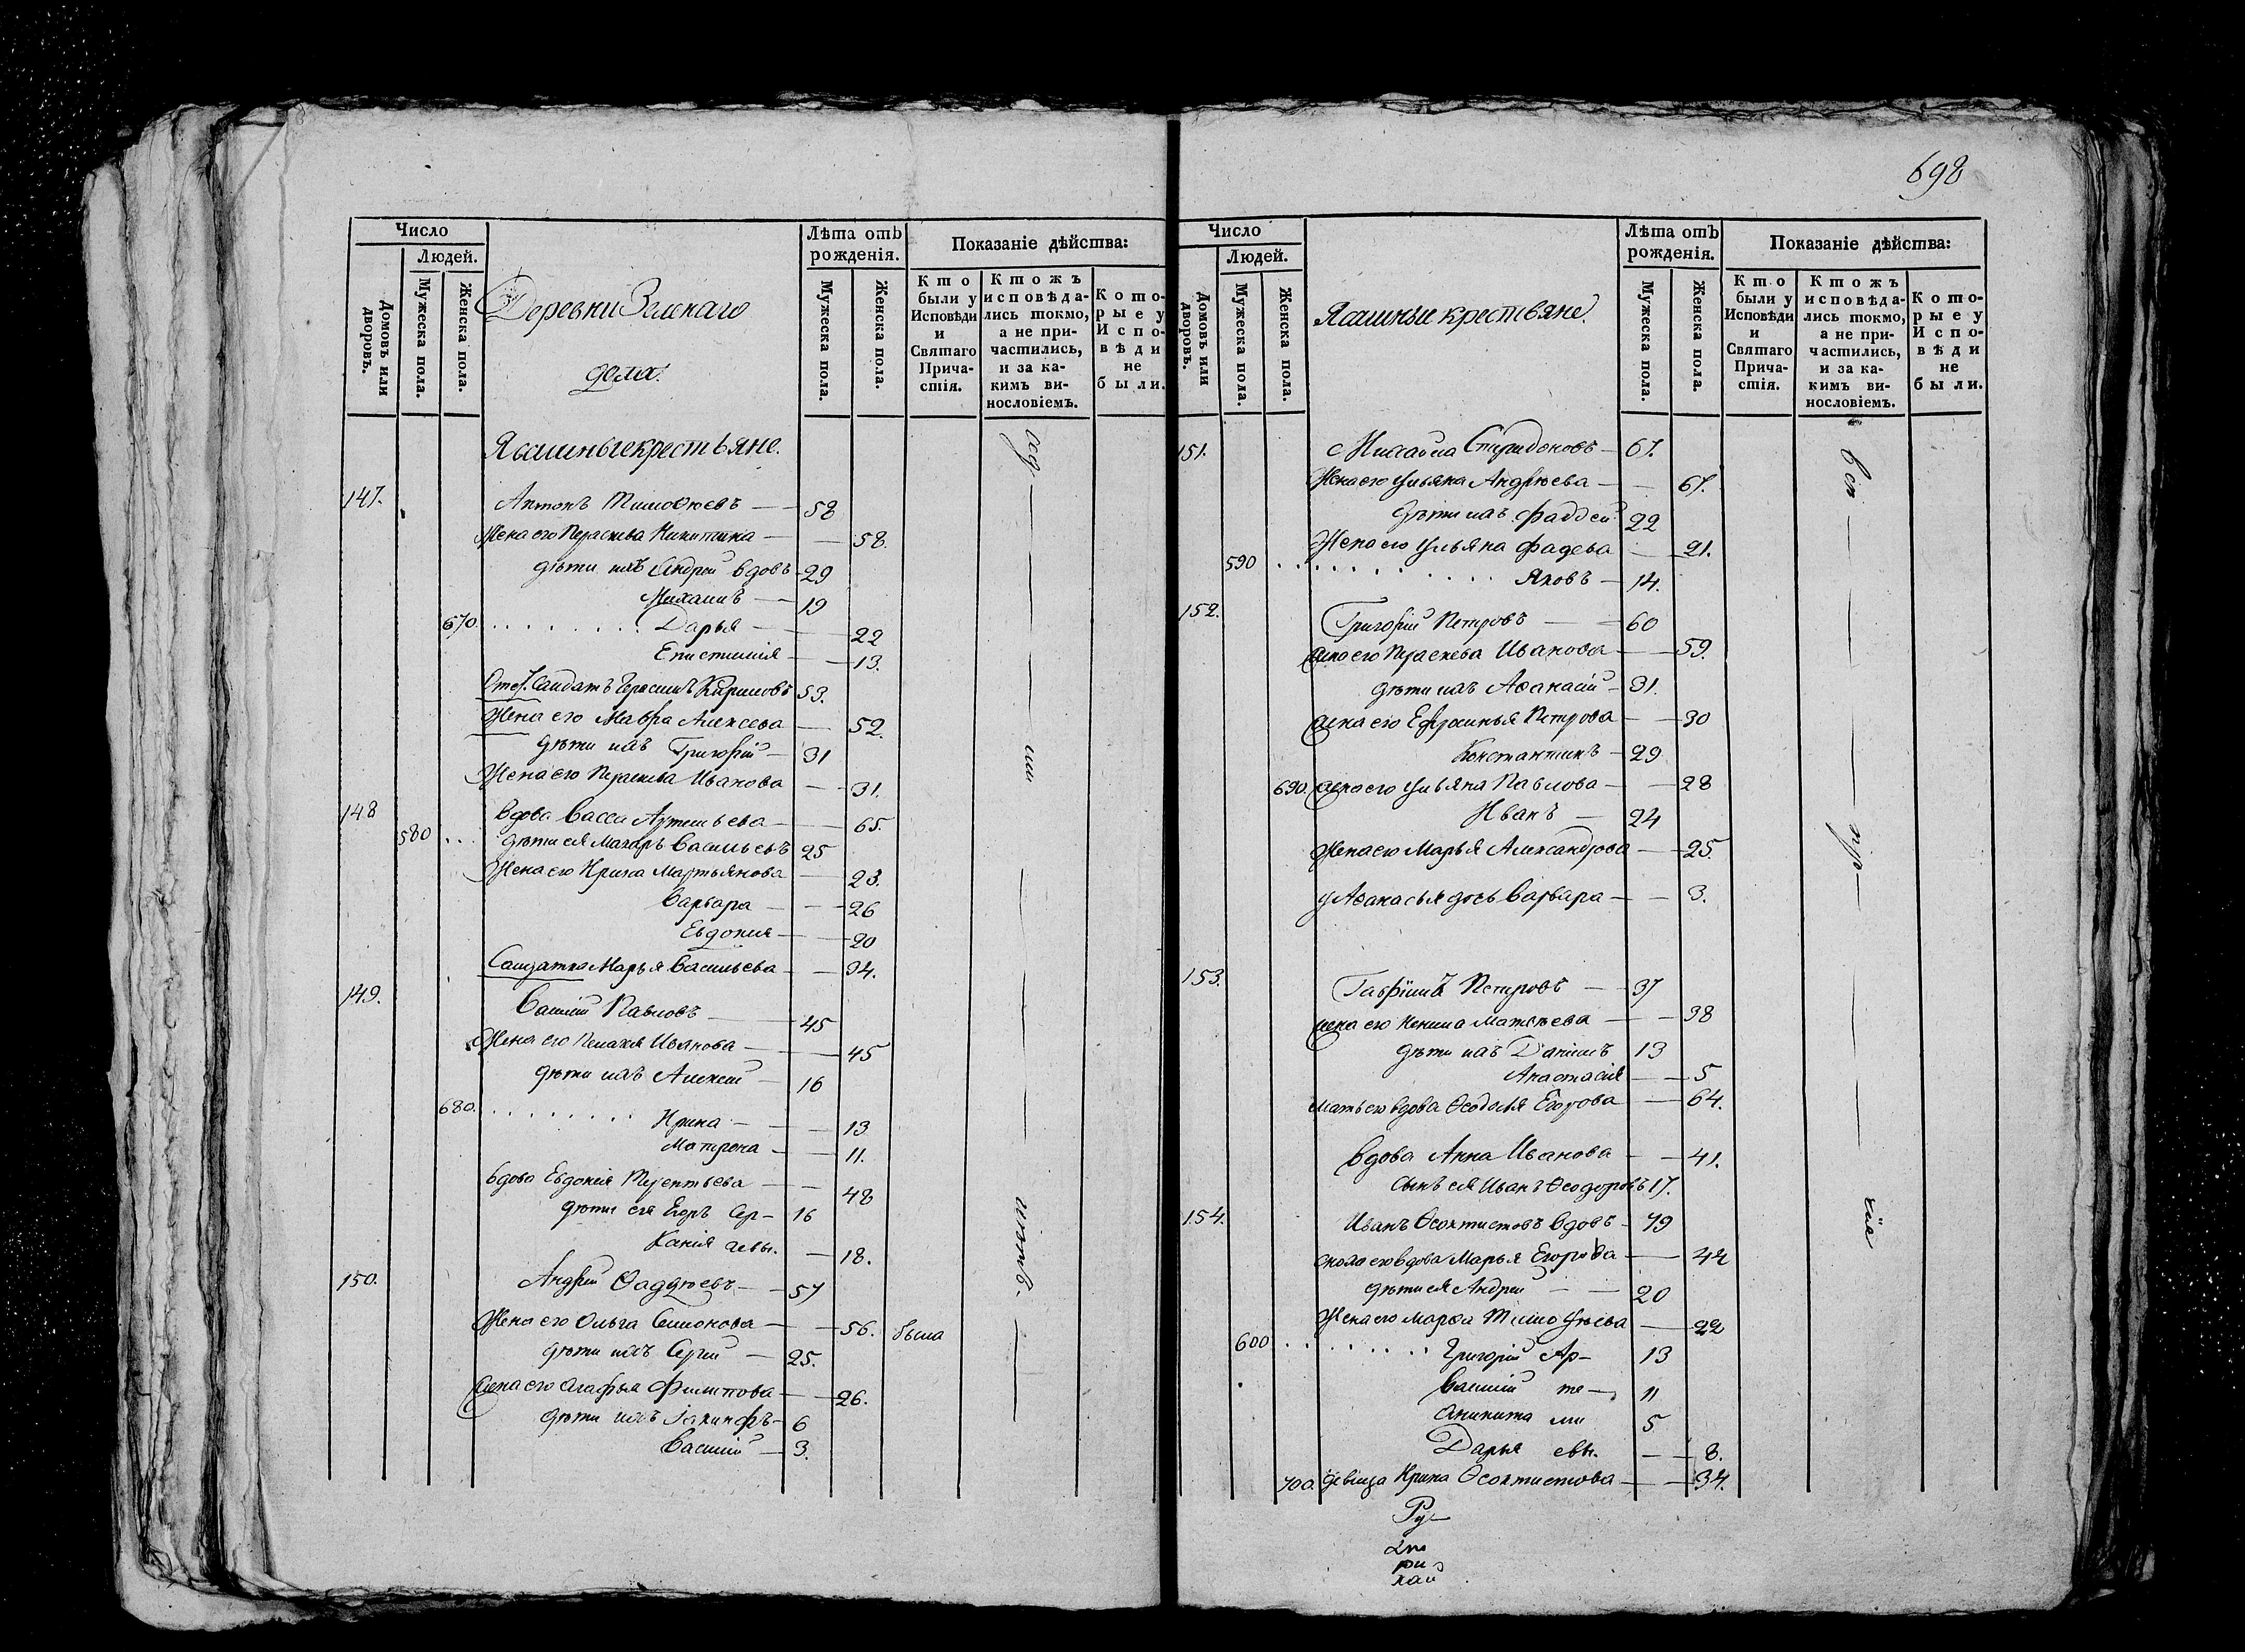 698
Число
Людей.
Домовъ или дворовъ.
Мужеска пола.
Женска пола.
Деревни
дома.
Лѣта отъ рожденія.
Мужеска пола.
Женска пола.
Показаніе дѣйства:
Кто были у Исповѣди и Святаго Причастія.
Ктожъ исповѣдались токмо, а не причастились, и за какимъ винословіемъ.
Которые у Исповѣди не были.
Ясашныекрестьяне.
147. Антонъ Тимоѳѣевъ 58
Жена его Параскева Никитина 58.
дѣти ихъ Андрей вдовъ 29
Михаилъ 19
670. Дарья 22
Епистимія 13.
Солдатъ Герасимъ Кириловъ 53.
Жена его Мавра Алексѣева 52.
дѣти ихъ Григорій 31
Жена его Параскева Иванова 31.
148 Вдова Васса Артемьева 65.
580 дѣти ея Макаръ Васильевъ 25
Жена его Ирина Мартьянова 23.
Варвара 26
Евдокия 20
Салдатка Марья Васильева 34.
149. Василій Павловъ 45
Жена его Пелагея Иванова 45
дѣти ихъ Алексей 16
680. Ирина 13
Матрона 11.
вдова Евдокия Терентьева 48
дѣти ея Егоръ Сер- 16
Ксенія аевы. 18.
150. Андрей Ѳаддѣевъ 57
Жена его Ольга Семионова 56. была
дѣти ихъ Сергій 25.
жена его Агафья Филипова 26.
дѣти ихъ Іакинфъ 6
Василій 3.
Число
Людей.
Домовъ или дворовъ.
Мужеска пола.
Женска пола.
Ясашные крестьяне.
Лѣта отъ рожденія.
Мужеска пола.
Женска пола.
Показаніе дѣйства:
Кто были у Исповѣди и Святаго Причастія.
Ктожъ исповѣдались токмо, а не причастились, и за какимъ винословіемъ.
Которые у Исповѣди не были.
151. Михайла Спиридоновъ 67.
Жена его Ульяна Андрѣева 67.
дѣти ихъ Фаддей 22
Жена его Ульяна Фадева 21.
590 Яковъ 14.
152. Григорій Петровъ 60
жена его Параскева Иванова 59.
дѣти ихъ Аѳанасій 31.
жена его Ефросинья Петрова 30
Константинъ 29
690. жена его Ульяна Павлова 28
Иванъ 24
Жена его Марья Александрова 25.
у Аѳанасья дочь Варвара 3.
153. Гавріилъ Петровъ 37
жена его Ксенія Матвѣева 38
дѣти ихъ Даніилъ 13
Анастасія 5
мать его вдова Ѳеодосья Егорова 64.
Вдова Анна Иванова 41.
сынъ ея Иванъ Ѳеодоровъ 17.
154. Иванъ Ѳеоктистовъ вдовъ 79
сноха его вдова Марья Егорова 42
дѣти ея Андрей 20
Жена его Марѳа Тимоѳѣева 22
600 Григорій Ар- 13
Василій те- 11
Аникита ми 5
Дарья евы. 8.
700. девица Ирина Ѳеоктистова 34.